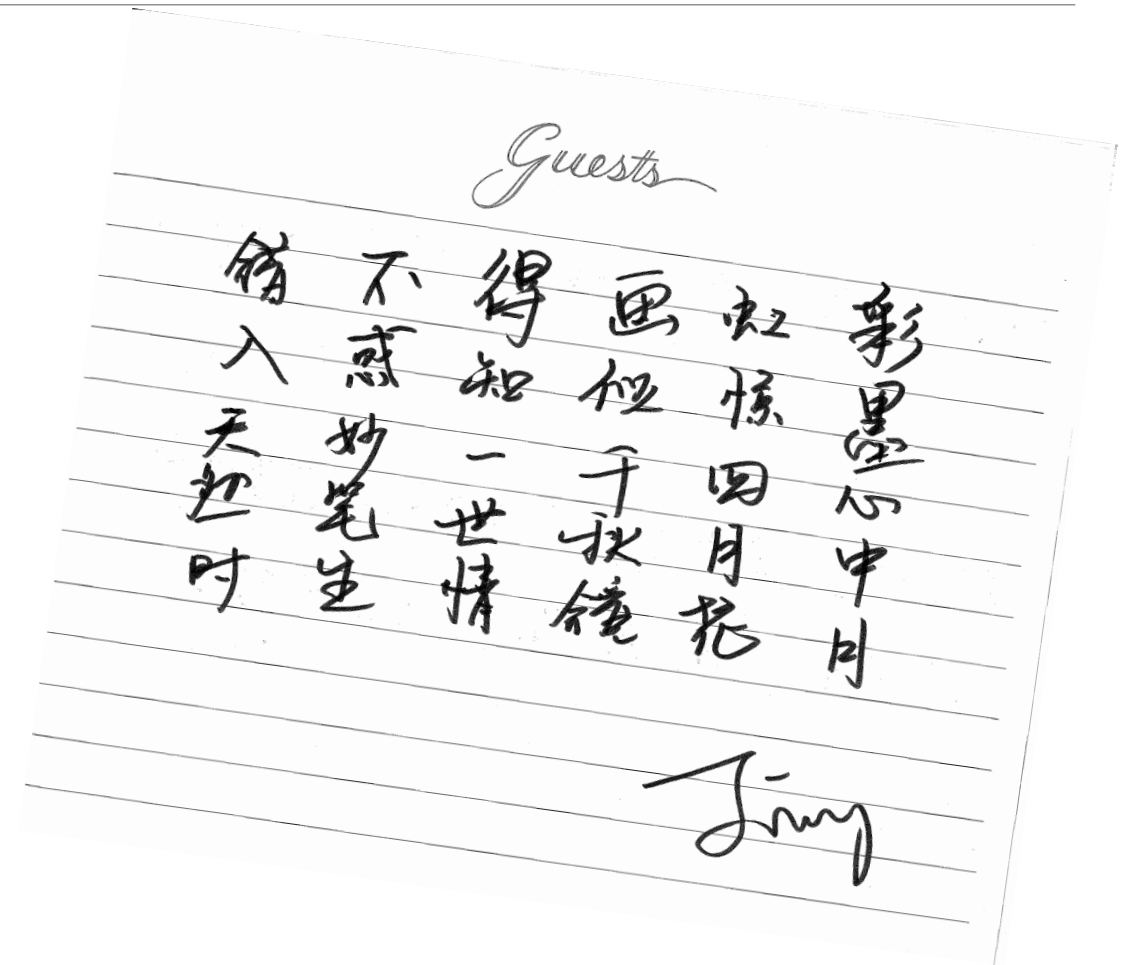 Guests
彩墨心中月
虹惊四月花
画似千秋镜
得知一世情
不惑妙笔生
入天时
Jimy